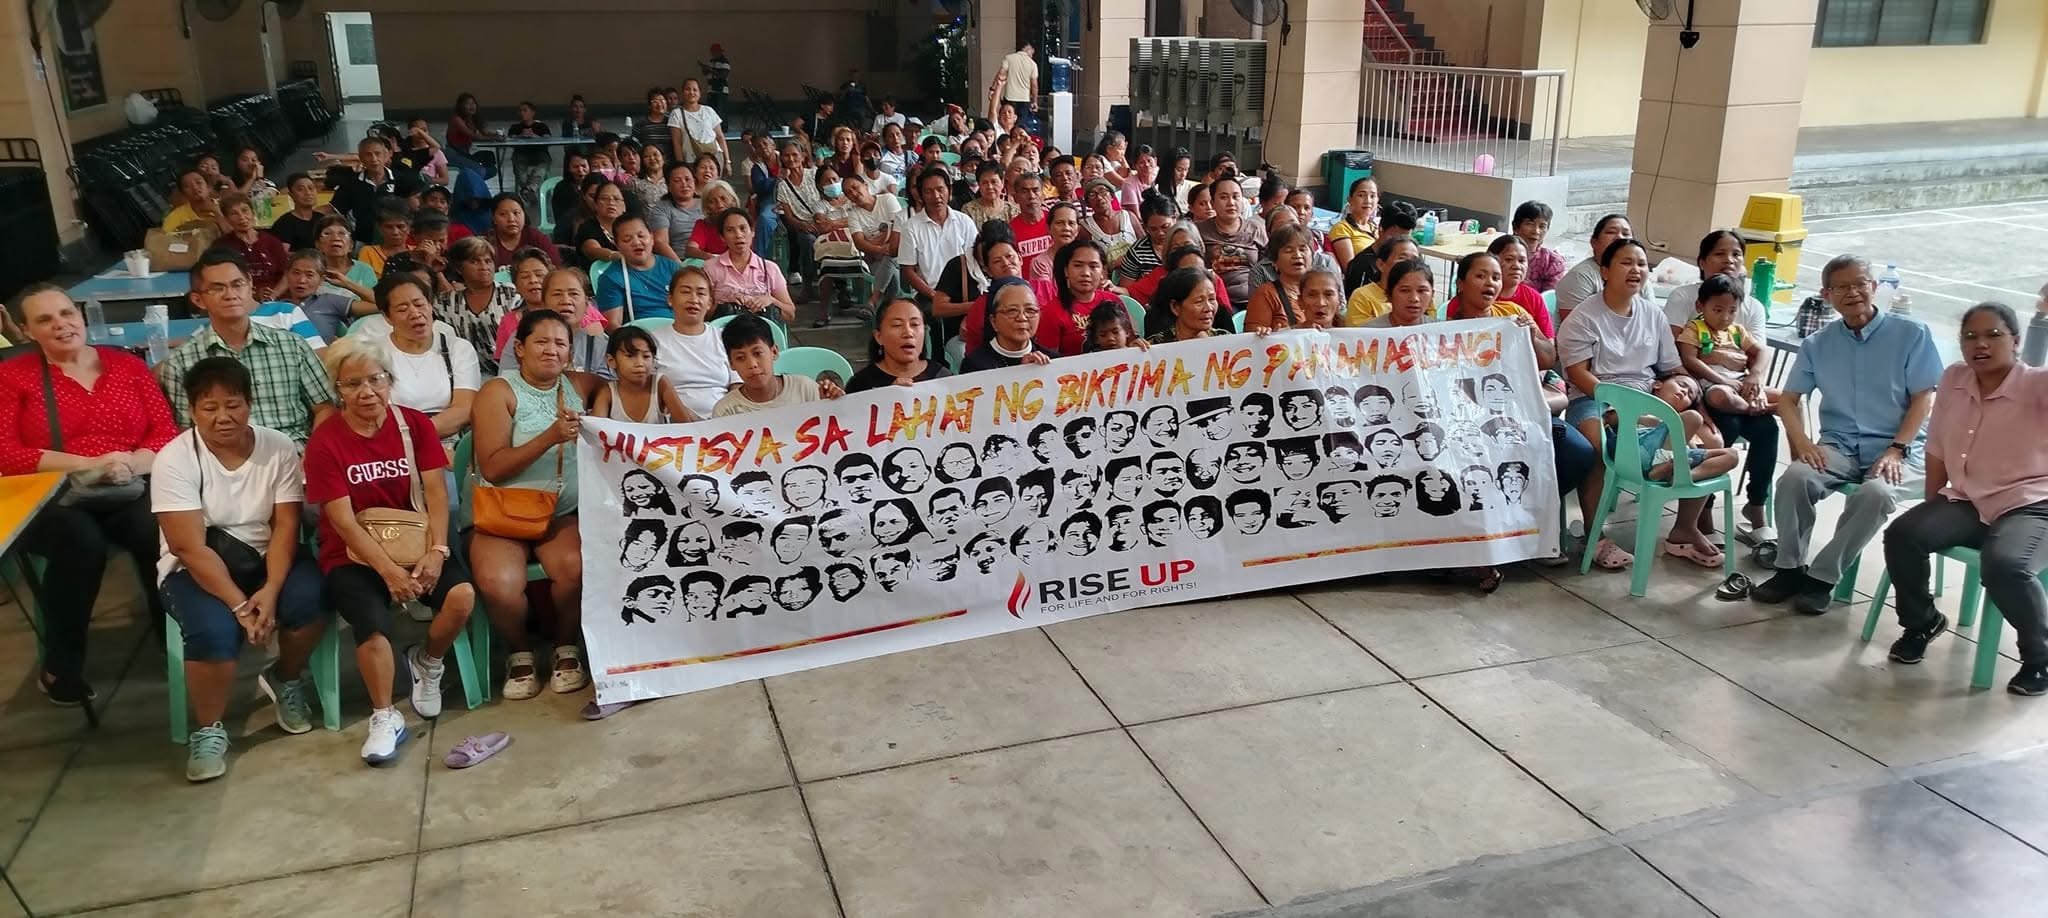 HUSTISYA SA LAHAT NG BIKTIMA NG PAMAMASLANG!
RISE UP
FOR LIFE AND FOR RIGHTS!
GUESS
SUPREM